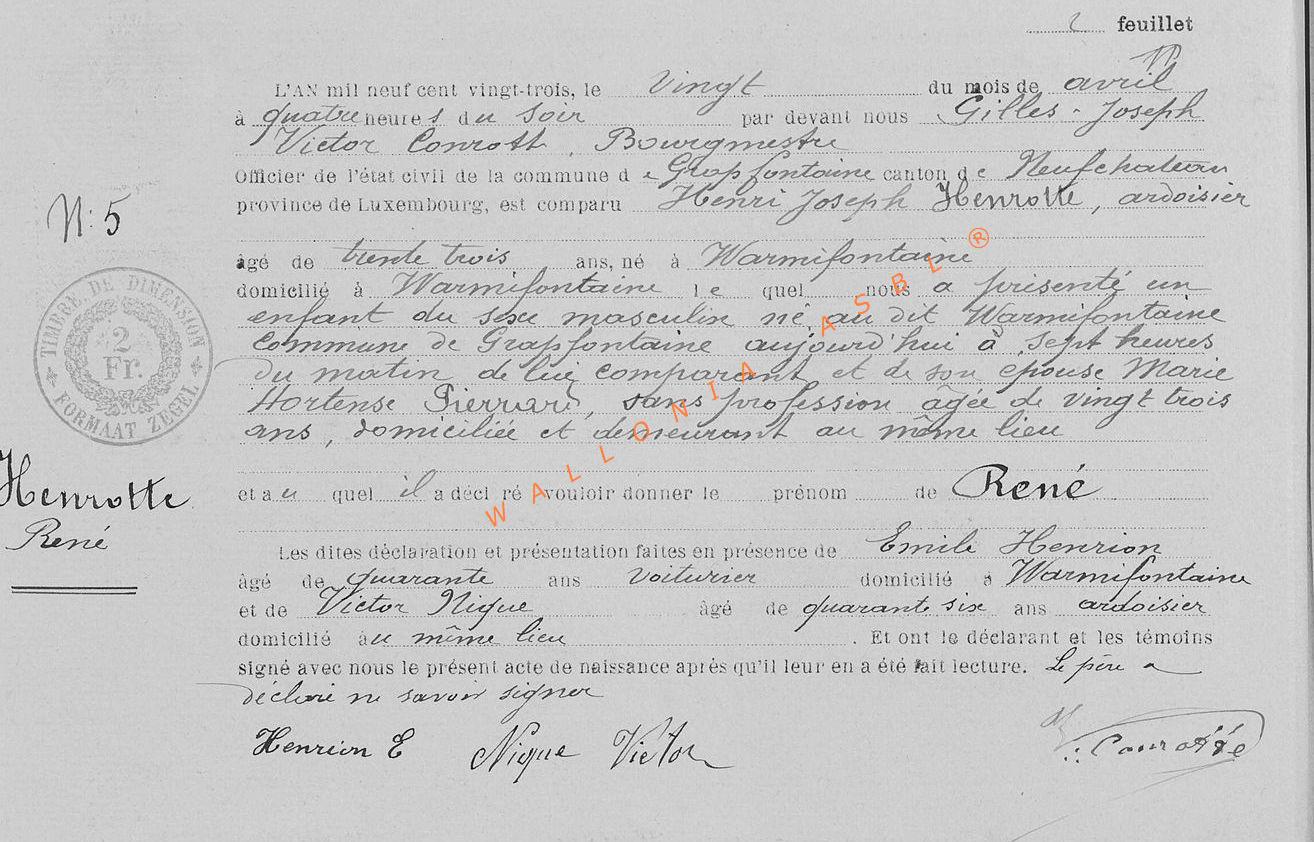 2 feuillet
L'AN mil neuf cent vingt-trois, le vingt du mois de avril
à quatre heures du soir par devant nous Gilles-Joseph
Victor Conrott, Bourgmestre
Officier de l'état civil de la commune de Grapfontaine canton de Neufchateau
province de Luxembourg, est comparu Henri Joseph Henrotte, ardoisier
N: 5
âgé de trente trois ans, né à Warmifontaine
domicilié à Warmifontaine lequel nous a présenté un
enfant du sexe masculin né au dit Warmifontaine
Commune de Grapfontaine aujourd'hui à sept heures
du matin de lui comparant et de son épouse Marie
Hortense Pierrard, sans profession âgée de vingt trois
ans, domiciliée et demeurant au même lieu
TIMBRE DE DIMENSION
2
Fr.
FORMAAT ZEGEL
Henrotte
René
et au quel il a déclaré vouloir donner le prénom de René
Les dites déclaration et présentation faites en présence de Emile Henrion
âgé de quarante ans voiturier domicilié à Warmifontaine
et de Victor Nique âgé de quarante six ans ardoisier
domicilié au même lieu. Et ont le déclarant et les témoins
signé avec nous le présent acte de naissance après qu'il leur en a été fait lecture. Le père a
déclaré ne savoir signer
Henrion E Nique Victor Conrotte
WALLONIA ASBL ®